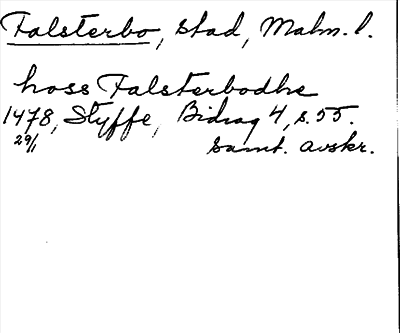 Falsterbo, stad, Malm. l.
hoss Falsterbodhe
1478, Styffe, Bidrag 4, s. 55.
29/1 samt. avskr.